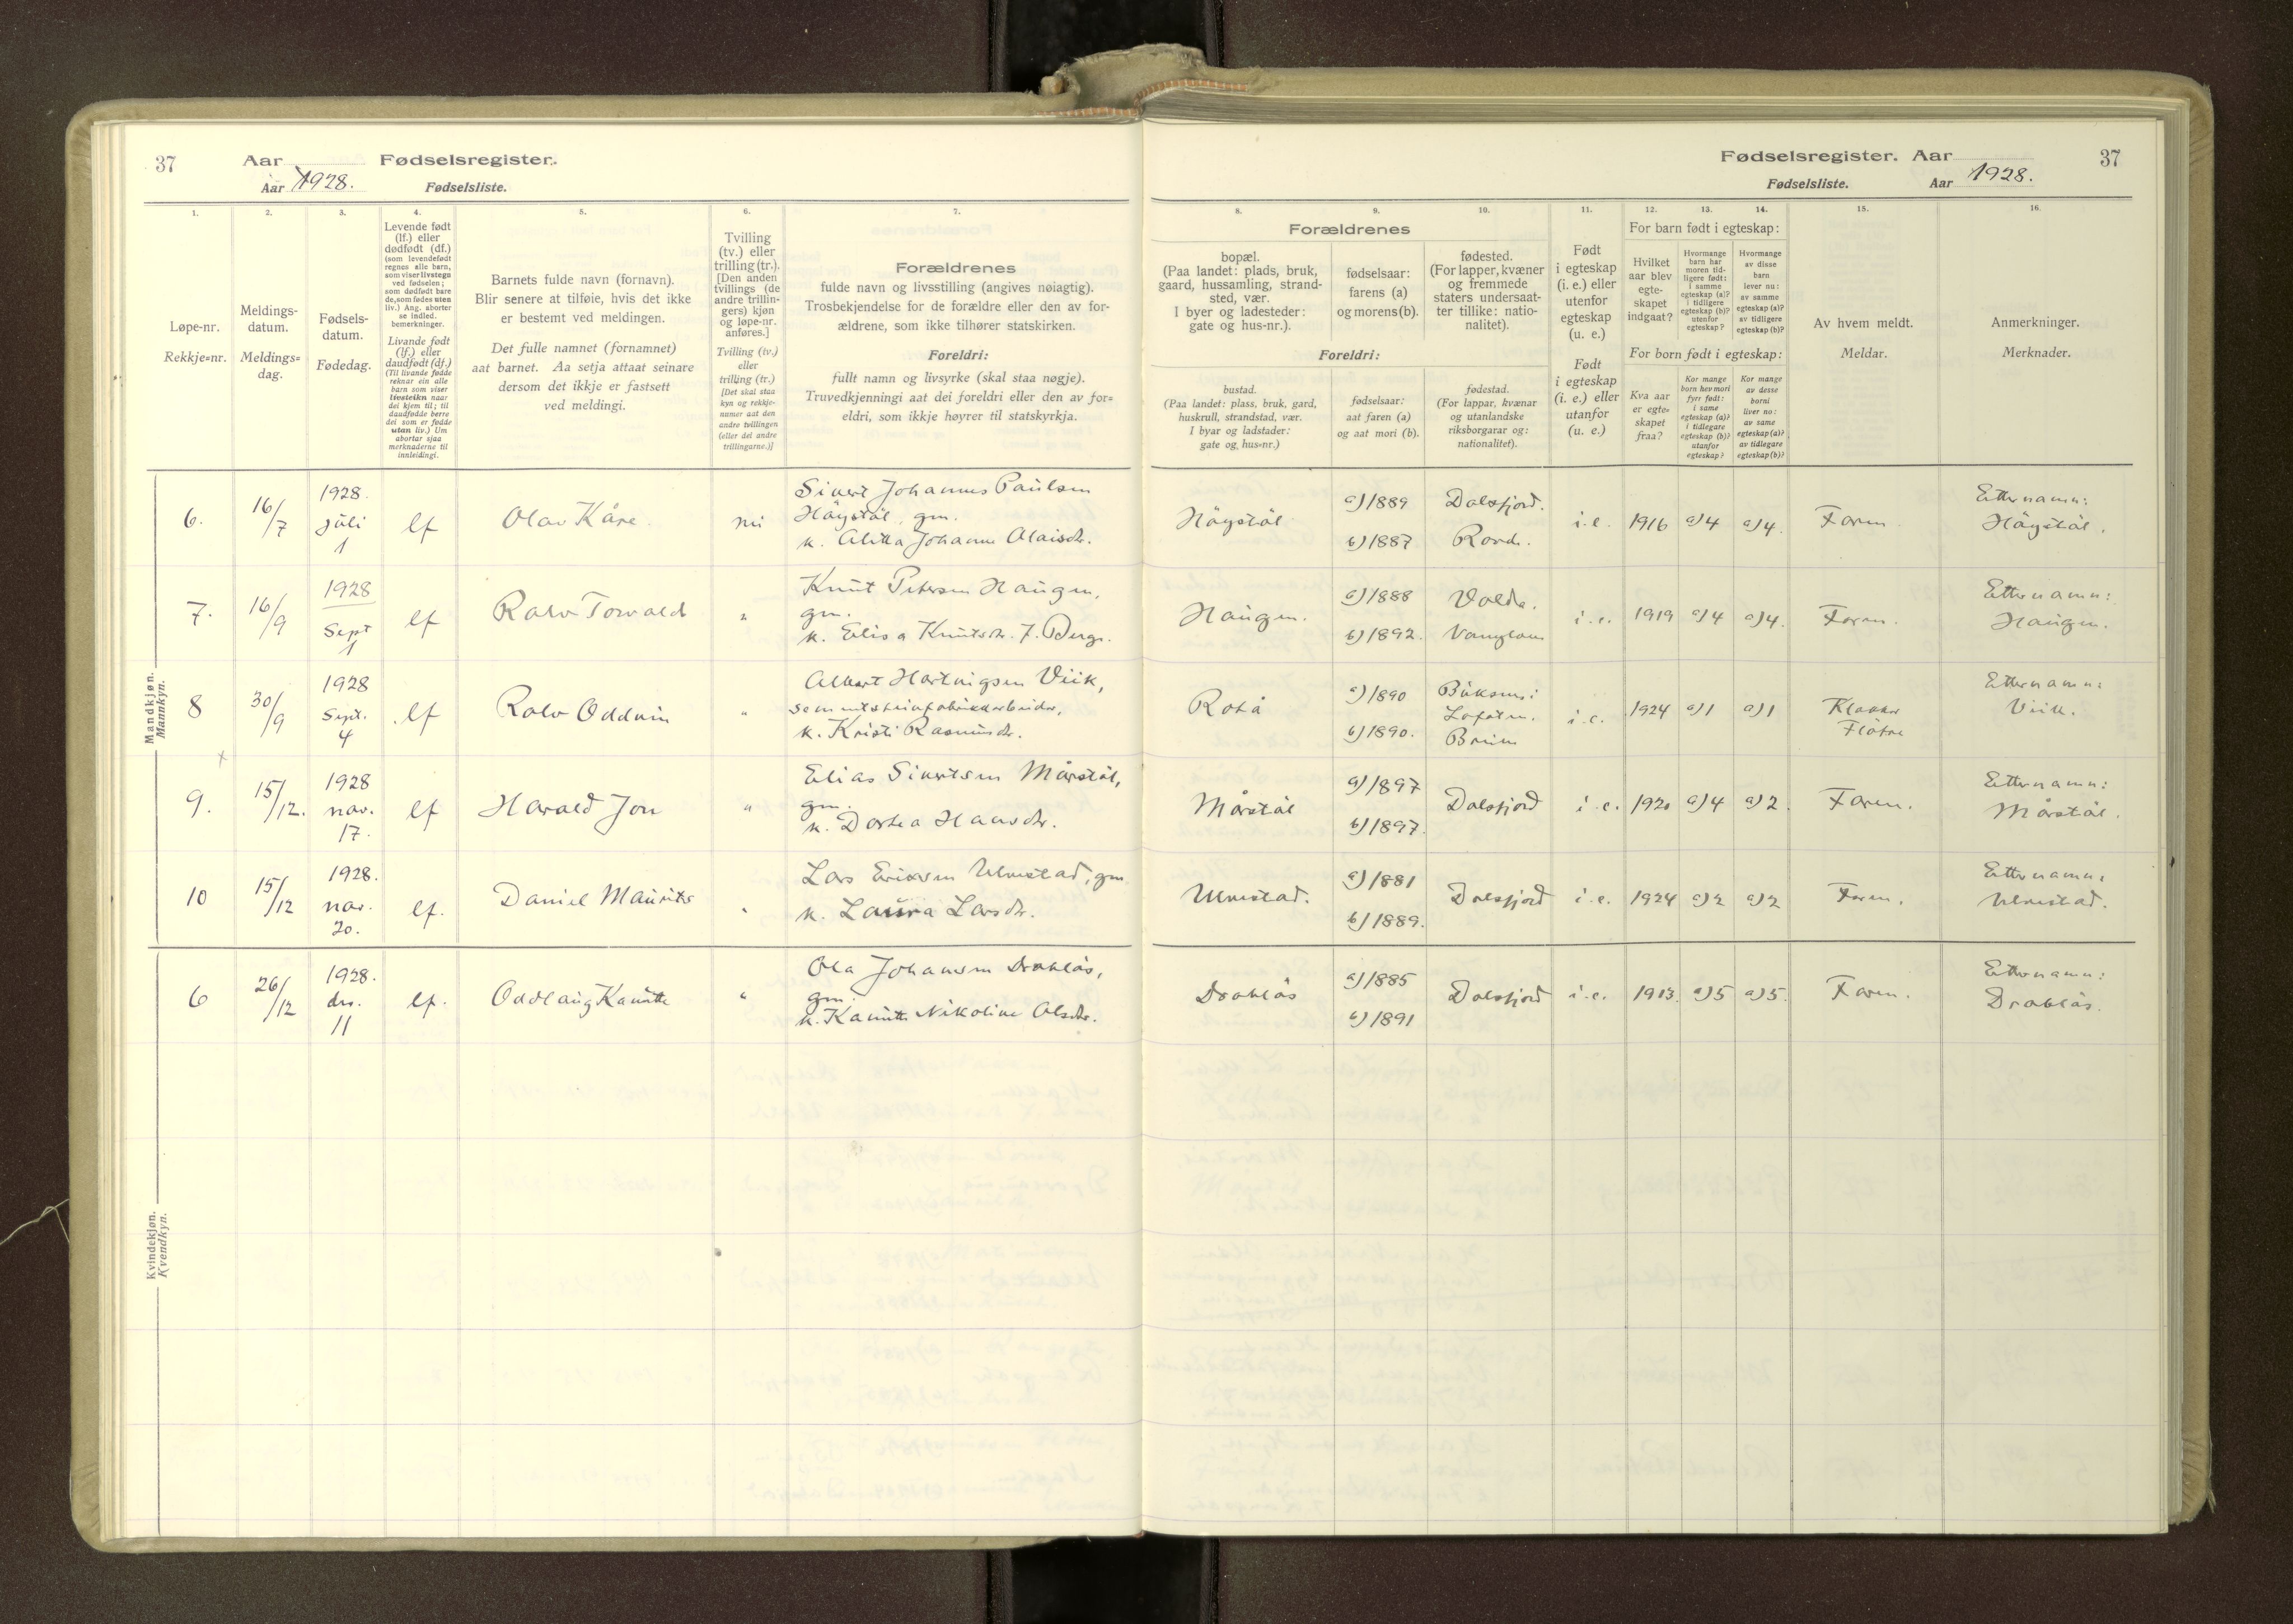 37 Aar Fødselsregister.
Aar 1928. Fødselsliste.
Fødselsregister. Aar 37
Fødselsliste. Aar 1928.
1.
Løpe-nr.
Rekkje=nr.
2.
Meldings-
datum.
Meldings=
dag.
3.
Fødsels-
datum.
Fødedag.
4.
Levende født
(lf.) eller
dødfødt (df.)
(som levendefødt
regnes alle barn,
som viser livstegn
ved fødselen;
som dødfødt bare
de, som fødes uten
liv.) Ang. aborter
se indled.
bemerkninger.
Livande født
(lf.) eller
daudfødt (df.)
(Til livande fødde
reknar ein alle
barn som viser
livsteikn naar
dei kjem til; til
daudfødde berre
dei som er fødde
utan liv.) Um
abortar sjaa
merknaderne til
innleidingi.
5.
Barnets fulde navn (fornavn).
Blir senere at tilføie, hvis det ikke
er bestemt ved meldingen.
Det fulle namnet (fornamnet)
aat barnet. Aa setja attaat seinare
dersom det ikkje er fastsett
ved meldingi.
6.
Tvilling
(tv.) eller
trilling (tr.).
[Den anden
tvillings (de
andre trillin-
gers) kjøn
og løpe-nr.
anføres.]
Tvilling (tv.)
eller
trilling (tr.)
[Det skal staa
kyn og rekkje-
numer aat den
andre tvillingen
(eller dei andre
trillingarne.)]
7.
Forældrenes
fulde navn og livsstilling (angives nøiagtig).
Trosbekjendelse for de forældre eller den av for-
ældrene, som ikke tilhører statskirken.
Foreldri:
fullt namn og livsyrke (skal staa nøgje).
Truvedkjenningi aat dei foreldri eller den av for=
eldri, som ikkje høyrer til statskyrkja.
Forældrenes
8.
bopæl.
(Paa landet: plads, bruk,
gaard, hussamling, strand-
sted, vær.
I byer og ladesteder:
gate og hus-nr.).
9.
fødselsaar:
farens (a)
og morens (b).
10.
fødested.
(For lapper, kvæner
og fremmede
staters undersaat-
ter tillike: natio-
nalitet).
Foreldri:
bustad.
(Paa landet: plass, bruk, gard,
huskrull, strandstad, vær.
I byar og ladstader:
gate og hus=nr.)
fødselsaar:
aat faren (a)
og aat mori (b).
fødestad.
(For lappar, kvænar
og utanlandske
riksborgarar og:
nationalitet).
11.
Født
i egteskap
(i. e.) eller
utenfor
egteskap
(u. e.)
Født
i egteskap
(i. e.) eller
utanfor
(u. e.)
12. 13. 14.
For barn født i egteskap:
Hvilket
aar blev
egte-
skapet
indgaat?
Hvormange
barn har
moren tid-
ligere født:
i samme
egteskap (a)?
i tidligere
egteskap (b)?
utenfor
egteskap?
Hvormange
av disse
barn
lever nu:
av samme
egteskap (a)?
av tidligere
egteskap (b)?
For born født i egteskap:
Kva aar
er egte=
skapet
fraa?
Kor mange
born hev mori
fyrr født:
i same
egteskap (a)?
i tidlegare
egteskap (b)?
utanfor
egteskap?
Kor mange
av desse
borni
liver no:
av same
egteskap (a)?
av tidlegare
egteskap (b)?
15.
Av hvem meldt.
Meldar.
16.
Anmerkninger.
Merknader.
Mandkjøn.
Mannkyn.
6. 16/7 1928. juli 1 lf Olav Kåre nei
Sivert Johannes Paulsen
Höystöl, gm.
k. Johanne Olaisdr.
Höystöl a) 1889 Dalsfjord. i.e. 1916 a) 4 a) 4. Faren Etternamn:
b) 1887 Höystöl.
7. 16/9 1928 Sept 1 lf Ralv Torvald "
Knut Petersen Haugen,
gm.
k. Elisa Knutsdr. f. Berge.
Haugen. a) 1888 Volda. i.e. 1919 a) 4 a) 4. Faren. Etternamn:
b) 1892. Haugen.
8 30/9 1928 Sept. 4 lf Ralv Oddvin "
Albert Hartvigsen Viik,
sementsteinfabrikkarbeider,
k. Kristi Rasmusdr.
Rotå a) 1890 Buksnes i Lofoten. i.e. 1924 a) 1 a) 1 Klokker Etternamn:
b) 1890. Viik.
9. 15/12. 1928 nov. 17. lf Harald Jon "
Elias Sivertsen Mårstöl,
gm.
k. Dortea Hansdr.
Mårstöl a) 1897 Dalsfjord i.e. 1920 a) 4 a) 2. Faren. Etternamn:
b) 1897. Mårstöl.
10 15/12 1928. nov. 20. lf. Daniel Maurits "
Lars Eriksen Ulvestad, gm.
k. Laura Larsdr.
Ulvestad. a) 1881 Dalsfjord i.e. 1924 a) 2 a) 2 Faren. Etternamn:
b) 1889. Ulvestad.
Kvindekjøn.
Kvendkyn.
6 26/12 1928. des. 11 lf. Oddlaug Kamitte "
Ola Johansen Drabløs,
gm.
k. Kamitte Nikoline Olsdr.
Drabløs a) 1885 Dalsfjord i.e. 1913. a) 5 a) 5. Faren. Etternamn:
b) 1891 Drabløs.